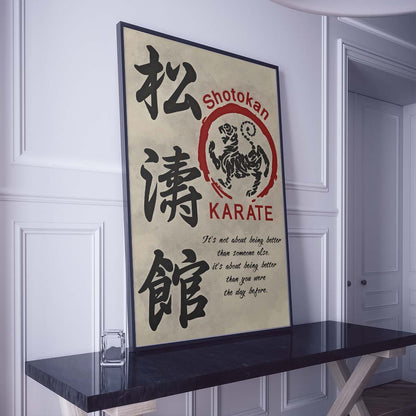 松
濤
館
Shotokan
KARATE
It's not about being better
than someone else,
it's about being better
than you were
the day before.